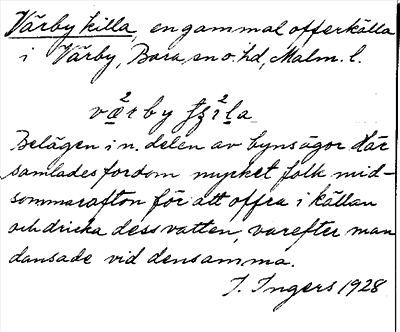 Värby killa, en gammal offerkälla
i Värby, Bara sn o. hd, Malm. l.
Belägen i n. delen av bynsägor Här
samlades fordom mycket folk mid-
sommarafton för att offra i källan
och dricka dess vatten, varefter man
dansade vid densamma.
I. Ingers 1928